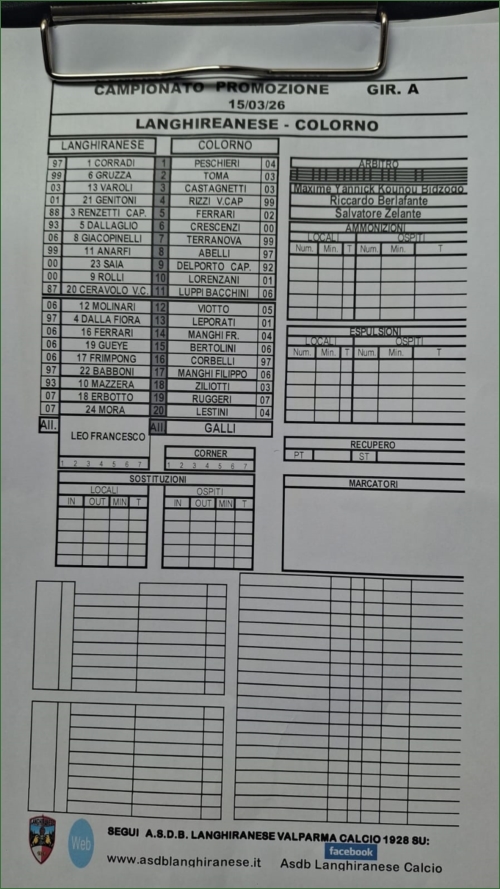 CAMPIONATO PROMOZIONE GIR. A
15/03/26
LANGHIREANESE - COLORNO
LANGHIRANESE COLORNO
97 1 CORRADI 1 PESCHIERI 04
99 6 GRUZZA 2 TOMA 03
03 13 VAROLI 3 CASTAGNETTI 03
01 21 GENITONI 4 RIZZI V.CAP 99
88 3 RENZETTI CAP. 5 FERRARI 02
93 5 DALLAGLIO 6 CRESCENZI 00
06 8 GIACOPINELLI 7 TERRANOVA 99
99 11 ANARFI 8 ABELLI 97
00 23 SAIA 9 DELPORTO CAP. 92
00 9 ROLLI 10 LORENZANI 01
87 20 CERAVOLO V.C. 11 LUPPI BACCHINI 06
06 12 MOLINARI 12 VIOTTO 05
97 4 DALLA FIORA 13 LEPORATI 01
06 16 FERRARI 14 MANGHI FR. 04
06 19 GUEYE 15 BERTOLINI 06
06 17 FRIMPONG 16 CORBELLI 97
97 22 BABBONI 17 MANGHI FILIPPO 06
93 10 MAZZERA 18 ZILIOTTI 03
07 18 ERBOTTO 19 RUGGERI 07
07 24 MORA 20 LESTINI 04
All. LEO FRANCESCO All GALLI
ARBITRO
Maxime Yannick Kounou Bidzogo
Riccardo Berlafante
Salvatore Zelante
AMMONIZIONI
LOCALI OSPITI
Num. Min. T Num. Min. T
ESPULSIONI
LOCALI OSPITI
Num. Min. T Num. Min. T
RECUPERO
PT ST
MARCATORI
CORNER
1 2 3 4 5 6 7 1 2 3 4 5 6 7
SOSTITUZIONI
LOCALI OSPITI
IN OUT MIN T IN OUT MIN T
SEGUI A.S.D.B. LANGHIRANESE VALPARMA CALCIO 1928 SU:
Web
facebook
www.asdblanghiranese.it Asdb Langhiranese Calcio